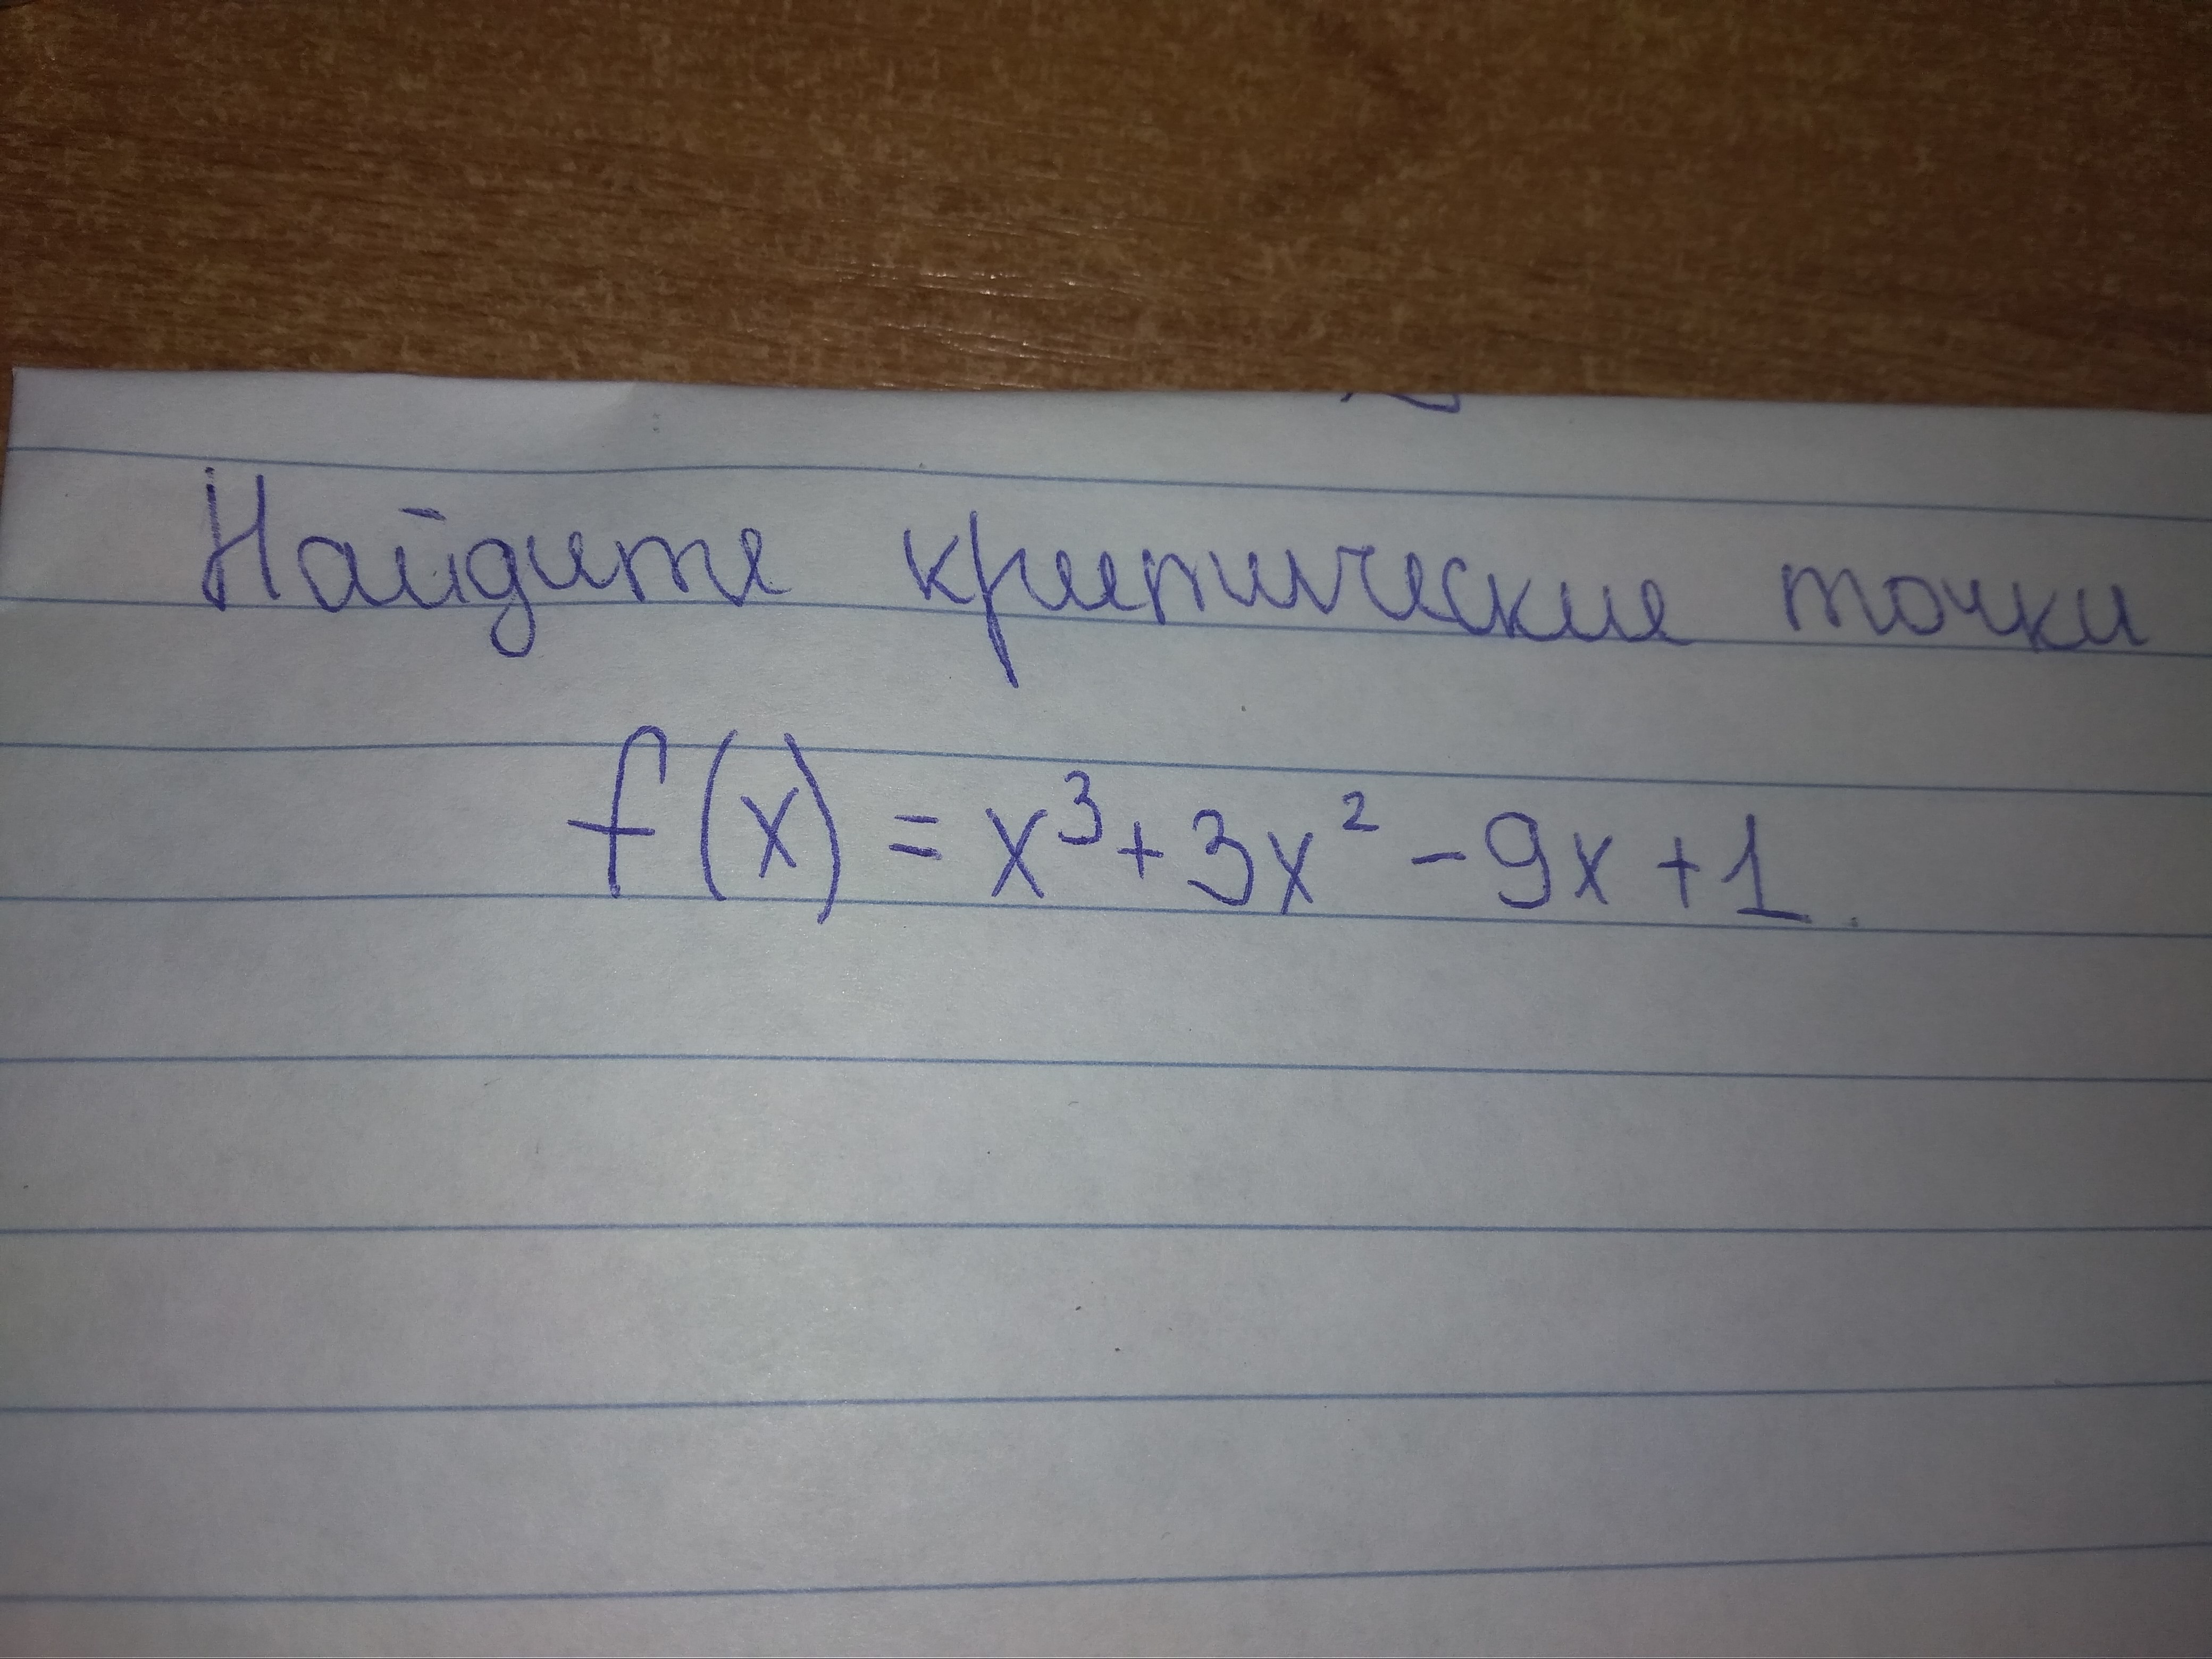 Найдите критические точки
f(x) = x³ + 3x² - 9x + 1.